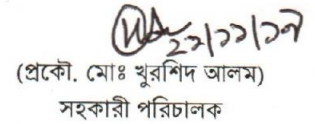 ২২/১১/১৭
(প্রকৌ. মোঃ খুরশিদ আলম)
সহকারী পরিচালক